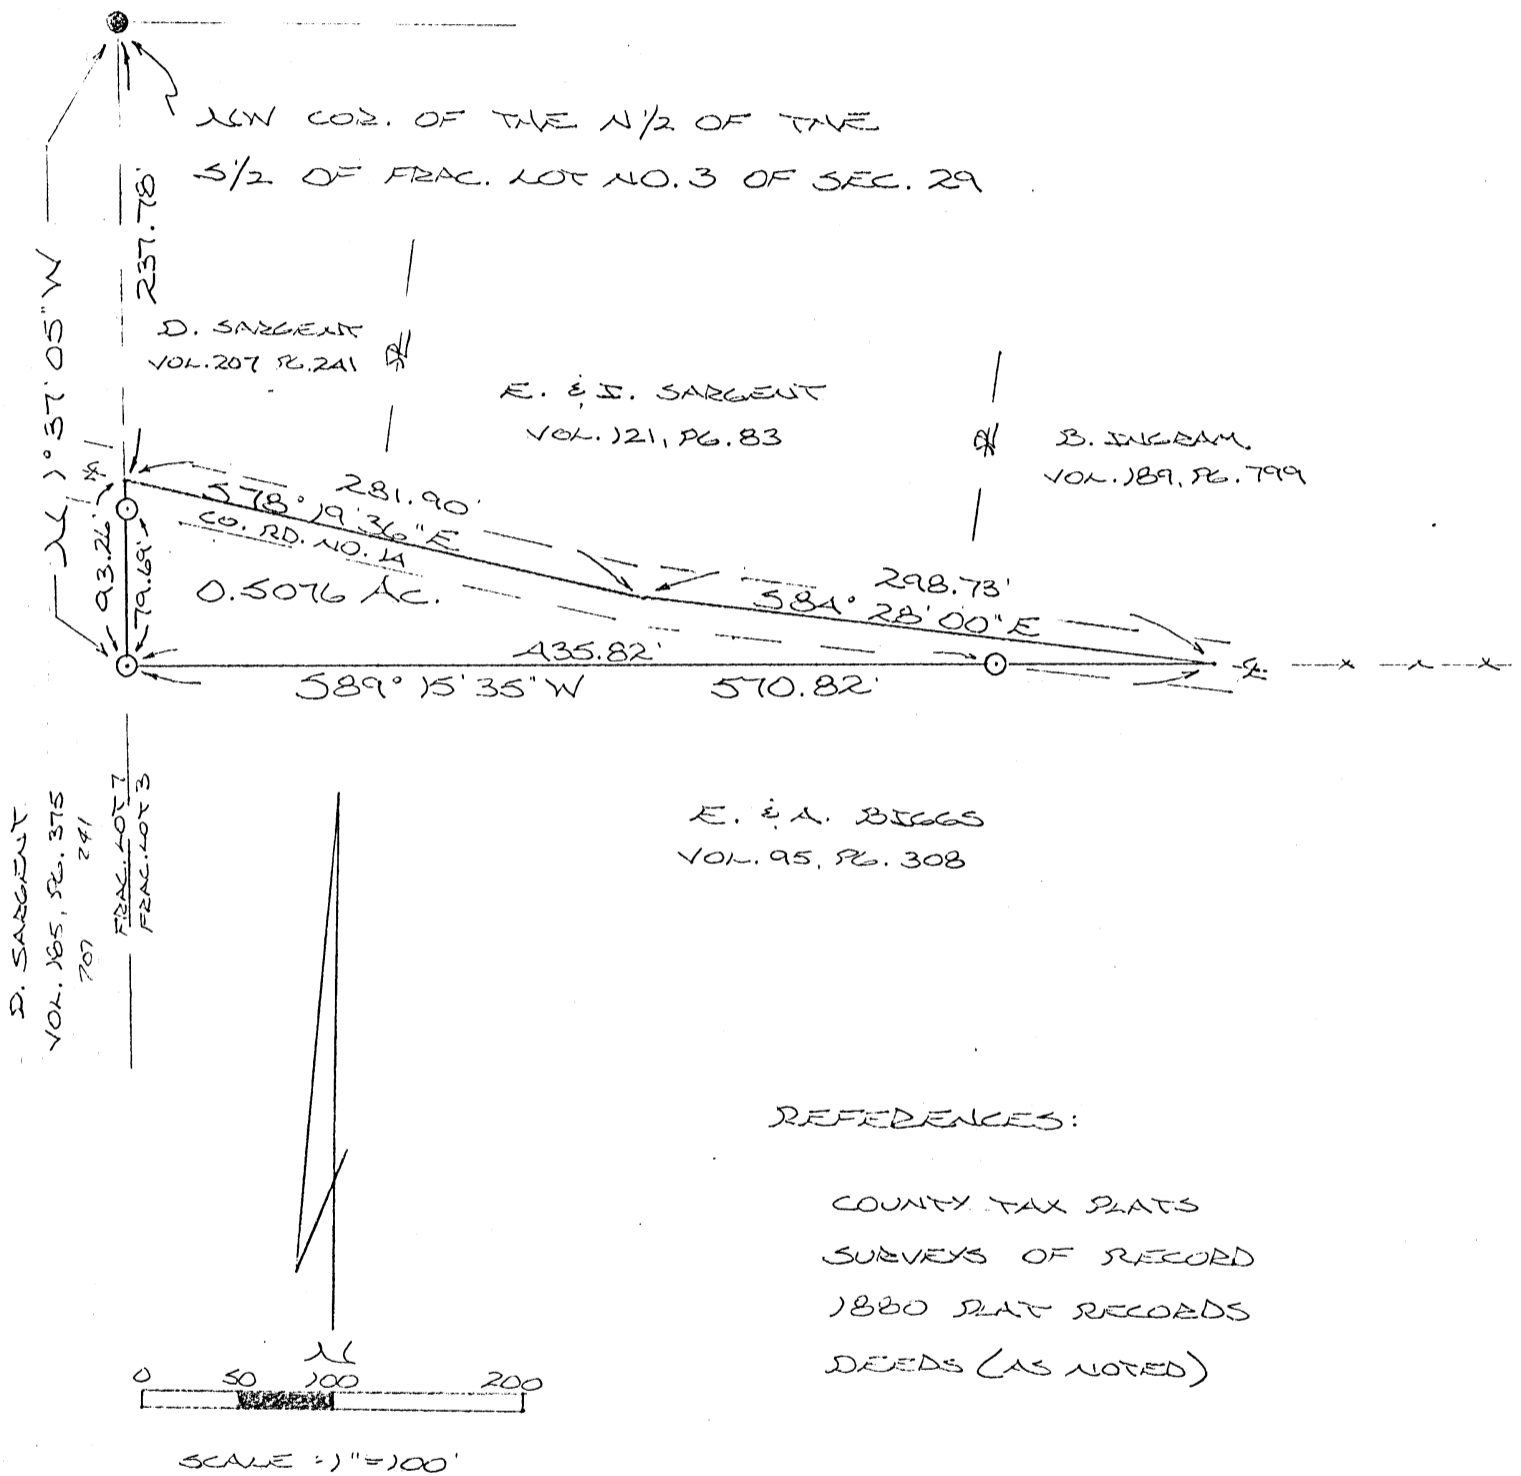 NW COR. OF THE N1/2 OF THE
S1/2 OF FRAC. LOT NO. 3 OF SEC. 29
237.78'
N 1° 37' 05" W
D. SARGENT
VOL. 207 PG. 241
PL
E. & I. SARGENT
VOL. 121, PG. 83
PL
B. INGRAM
VOL. 189, PG. 799
℄
281.90'
S78° 19' 36" E
CO. RD. NO. 1A
93.26'
79.69'
0.5076 AC.
298.73'
S84° 28' 00" E
435.82'
S89° 15' 35" W 570.82'
℄
D. SARGENT
VOL. 165, PG. 375
207 241
FRAC. LOT 7
FRAC. LOT 3
E. & A. BIGGS
VOL. 95, PG. 308
REFERENCES:
COUNTY TAX PLATS
SURVEYS OF RECORD
1880 PLAT RECORDS
DEEDS (AS NOTED)
N
0 50 100 200
SCALE : 1" = 100'